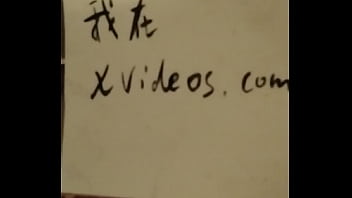 我在
xvideos.com